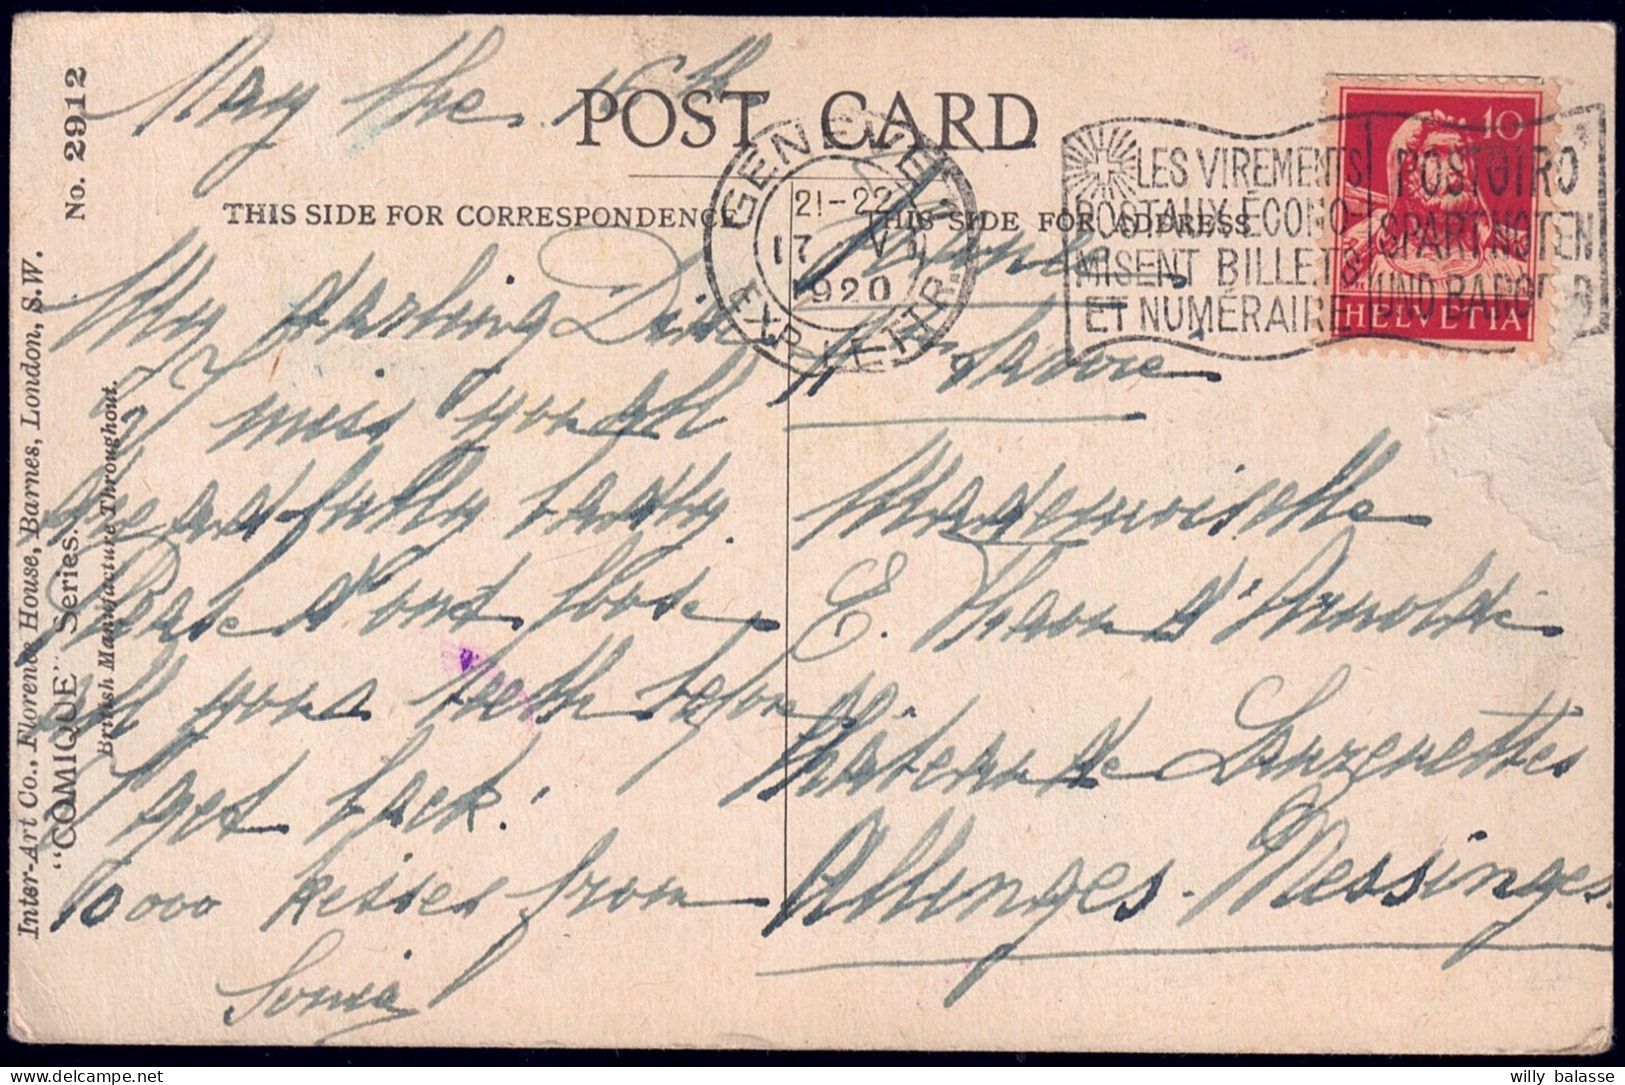 May the 16th
POST CARD
THIS SIDE FOR CORRESPONDENCE
THIS SIDE FOR ADDRESS
No. 2912
"COMIQUE" Series.
Inter-Art Co., Florence House, Barnes, London, S.W.
British Manufacture Throughout.
GENÈVE 1
21-22
17 V
1920
EXP. LETTR.
LES VIREMENTS
POSTAUX ÉCONO-
MISENT BILLETS
ET NUMÉRAIRE
POSTGIRO
SPART NOTEN
UND BARGELD
10
HELVETIA
My darling
I miss you all
dreadfully badly.
Please d'ont loose
all your teeth before
I get back!
10000 kisses from
Sonia
France
Hte Savoie
Mademoiselle
E. d'Arnoldi
Château de
Allinges-Messinges
willy balasse